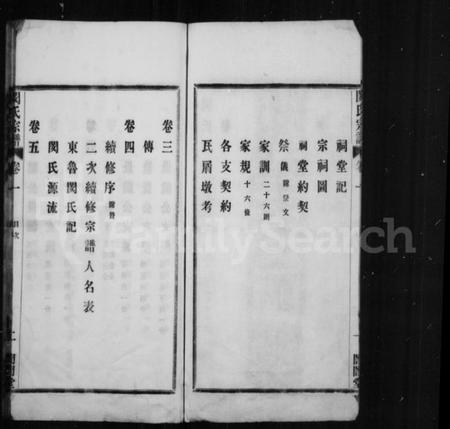 祠堂記
宗祠圖
祠堂約契
祭儀 附祭文
家訓 二十六則
家規 十六條
各支契約
瓦屑墩考
卷三
傳
卷四
續修序 附替
二次續修宗譜人名表
東魯閔氏記
卷五
閔氏源流
閔氏宗譜 卷一 目次
FamilySearch